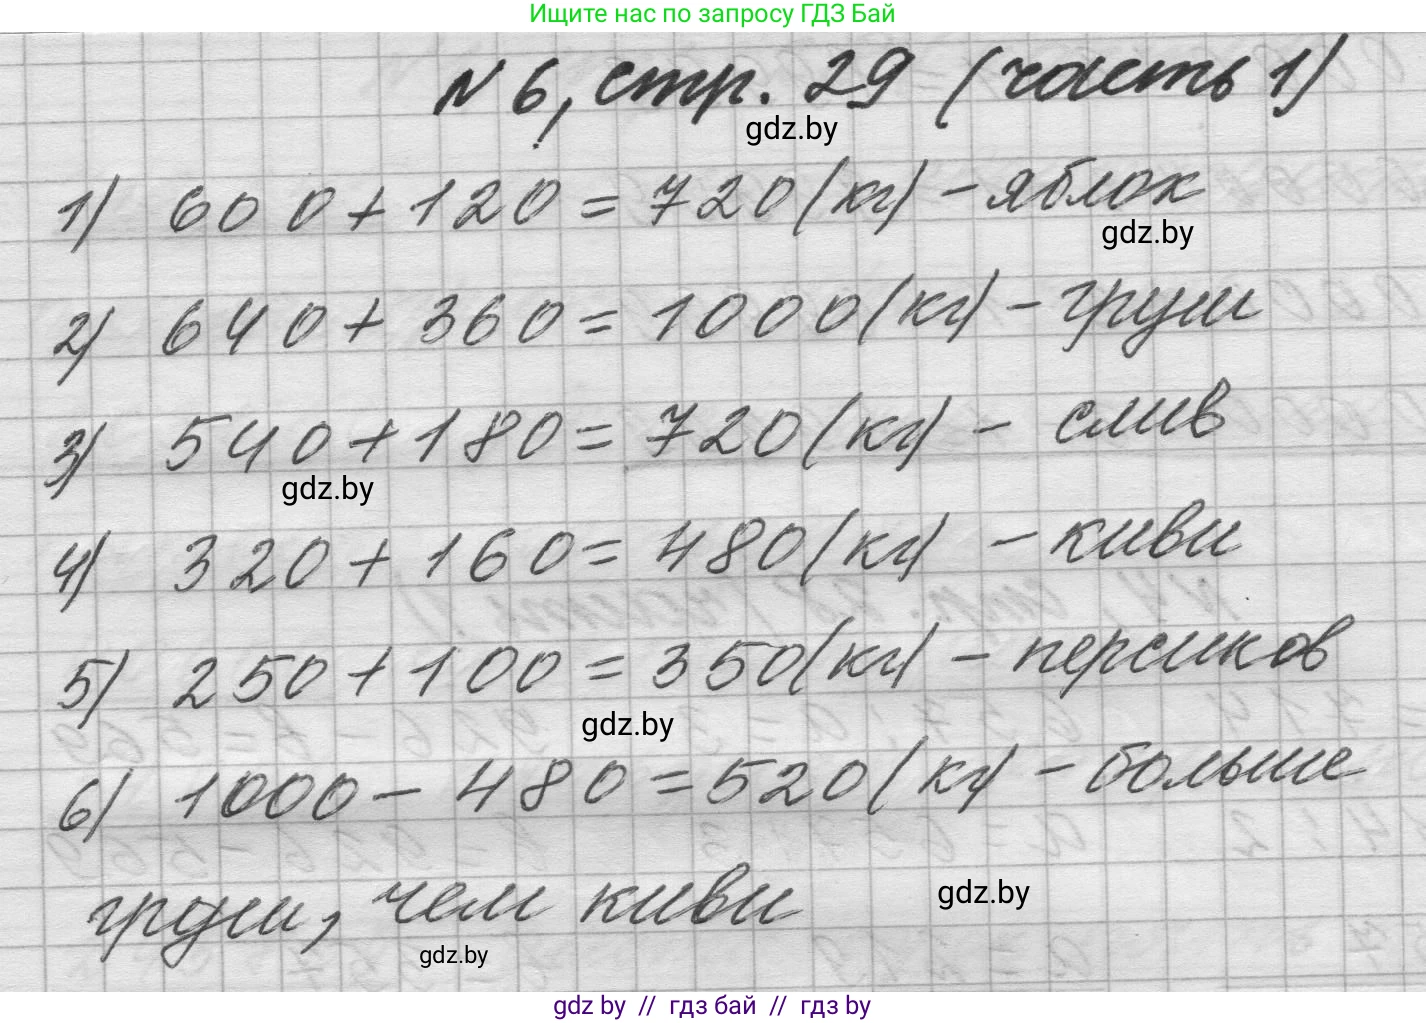 Ищите нас по запросу ГДЗ Бай
N 6, стр. 29 (часть 1)
gdz.by
1) 600 + 120 = 720 (кг) - яблок
gdz.by
2) 640 + 360 = 1000 (кг) - груш
3) 540 + 180 = 720 (кг) - слив
gdz.by
4) 320 + 160 = 480 (кг) - киви
5) 250 + 100 = 350 (кг) - персиков
gdz.by
6) 1000 - 480 = 520 (кг) - больше
груш, чем киви
gdz.by
gdz.by
gdz by // гдз бай // гдз by